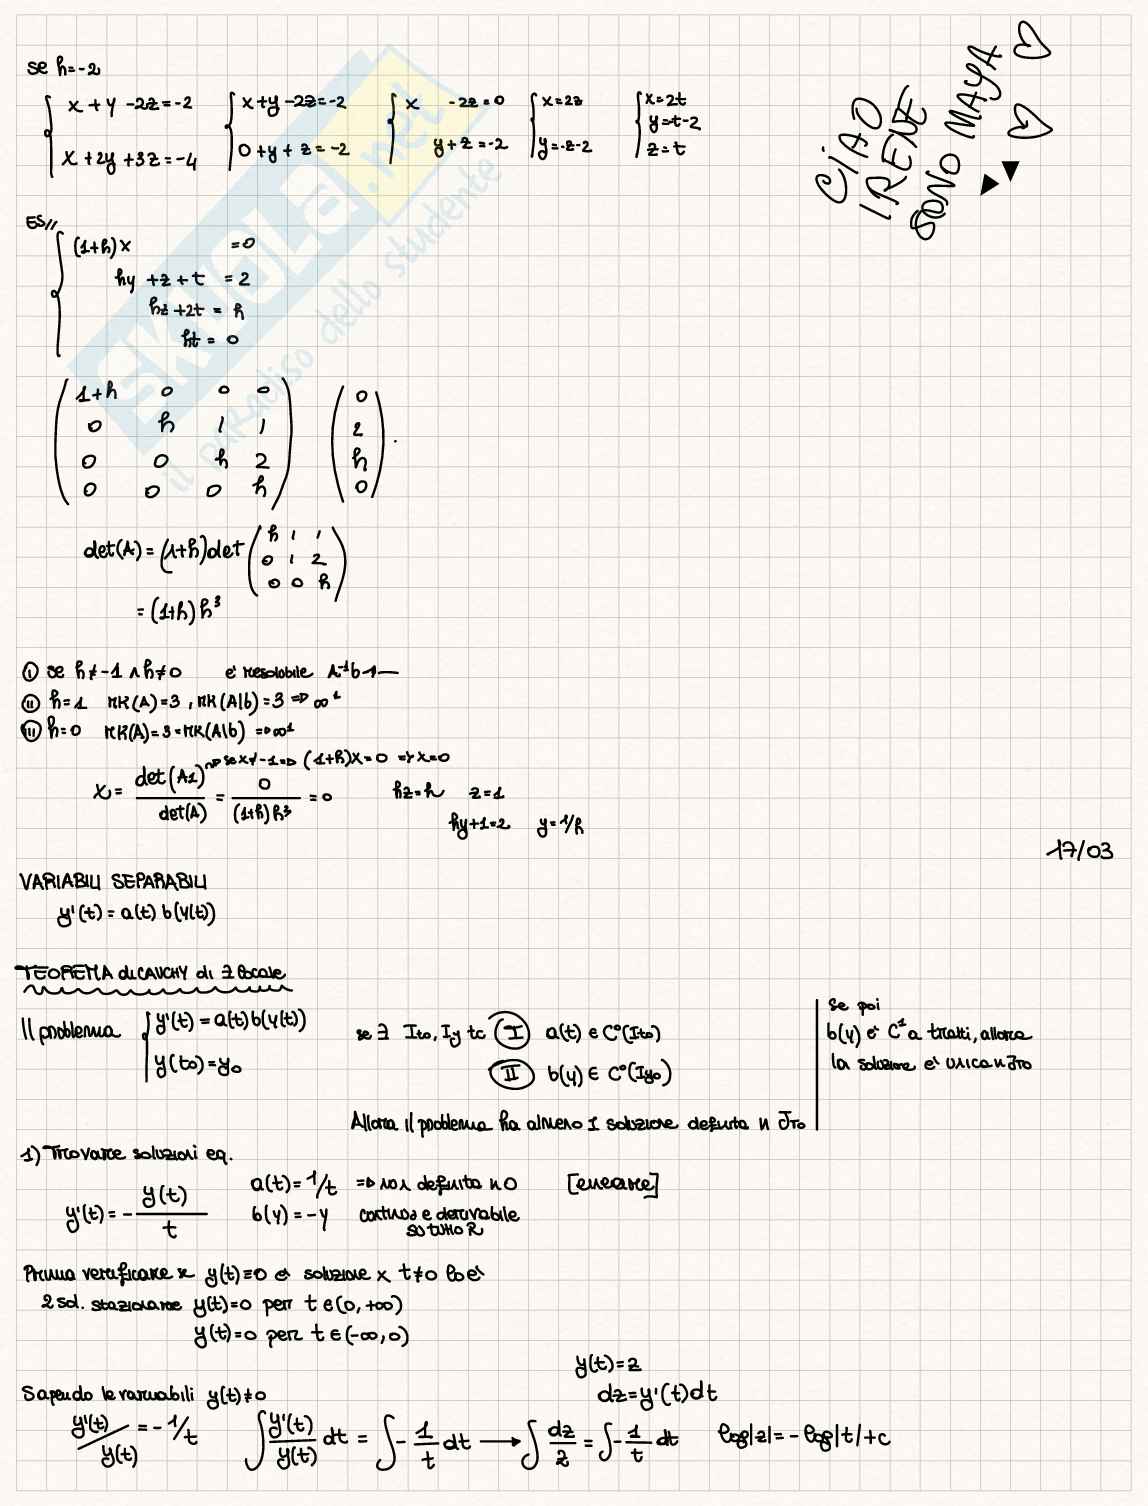 se h=-2
{ x + y -2z = -2
x + 2y + 3z = -4
{ x+y -2z=-2
0+y+z=-2
{ x -2z=0
y+z=-2
{ x=2z
y=-z-2
{ x=2t
y=-t-2
z=t
CIAO
IRENE
SONO MAYA
ES//
{ (1+h)x =0
hy +z+t =2
hz+2t = h
ht = 0
( 1+h 0 0 0
0 h 1 1
0 0 h 2
0 0 0 h )
( 0
2
h
0 )
det(A) = (1+h)det ( h 1 1
0 1 2
0 0 h )
= (1+h)h³
I se h≠-1 ∧ h≠0 e' risolobile A⁻¹b
II h=1 rk(A)=3, rk(A|b)=3 => ∞¹
III h=0 rk(A)=3=rk(A|b) => ∞¹
se x≠-1 => (1+h)x=0 => x=0
x = det(A1)/det(A) = 0/((1+h)h³) = 0
hz=h z=1
hy+1=2 y=1/h
17/03
VARIABILI SEPARABILI
y'(t) = a(t) b(y(t))
TEOREMA di CAUCHY di ∃ locale
Il problema { y'(t) = a(t)b(y(t))
y(t0)=y0
se ∃ It0, Iy tc I a(t) ∈ C°(It0)
II b(y) ∈ C°(Iy0)
Allora il problema ha almeno 1 soluzione definita in JT0
se poi
b(y) e' C¹ a tratti, allora
la soluzione e' unica in JT0
1) Trovare soluzioni eq.
y'(t) = - y(t)/t
a(t) = 1/t => non definita in 0 [lineare]
b(y) = -y continua e derivabile
su tutto R
Prima verificare se y(t)≡0 e' soluzione x t≠0 lo e'
2 sol. stazionarie y(t)=0 per t∈(0,+∞)
y(t)=0 per t∈(-∞,0)
y(t)=z
dz=y'(t)dt
Sapendo le variabili y(t)≠0
y'(t)/y(t) = -1/t ∫ y'(t)/y(t) dt = ∫ - 1/t dt → ∫ dz/z = ∫ - 1/t dt log|z| = -log|t|+c
SKUOLA.net
il paradiso dello studente